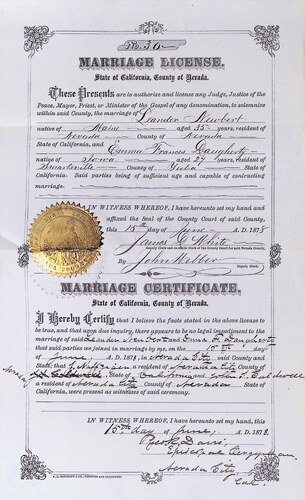 No. 30
MARRIAGE LICENSE.
State of California, County of Nevada.
These Presents are to authorize and license any Judge, Justice of the
Peace, Mayor, Priest, or Minister of the Gospel of any denomination, to solemnize
within said County, the marriage of Leander Newbert
native of Maine aged 35 years, resident of
Nevada County of Nevada
State of California, and Emma Frances Daugherty
native of Iowa aged 27 years, resident of
Smartsville County of Yuba State of
California. Said parties being of sufficient age and capable of contracting
marriage.
IN WITNESS WHEREOF, I have hereunto set my hand and
affixed the Seal of the County Court of said County,
this 15th day of June A.D. 1878
James G White
County Clerk and ex officio Clerk of the County Court for said Nevada County.
By John Webber
Deputy Clerk.
MARRIAGE CERTIFICATE.
State of California, County of Nevada.
I Hereby Certify that I believe the facts stated in the above license
to be true, and that upon due inquiry, there appears to be no legal impediment to the
marriage of said Leander Newbert and Emma F. Daugherty
that said parties were joined in marriage by me, on the 15th of
June, A.D. 1878, in Nevada City said County and
State; that a resident of Nevada City County
of Nevada, State of California, and Caldwell
a resident of Nevada City, County of Nevada State of
California, were present as witnesses of said ceremony.
IN WITNESS WHEREOF, I have hereunto set my hand, this
15th day of June, A.D. 1878.
Geo. R. Davis,
Episcopal Clergyman,
Nevada City,
Cal.